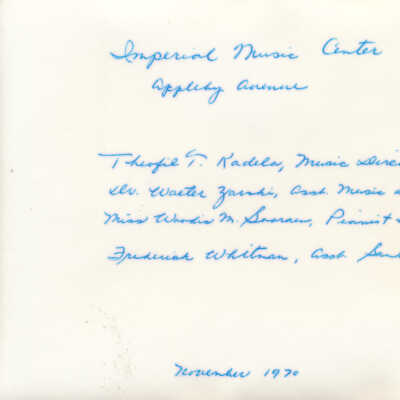 Imperial Music Center
Appleby Avenue
Theofil T. Kadela, Music Direc
Dr. Walter Zarski, Asst. Music
Miss M. Pianist
Frederick Whitman, Asst.
November 1970